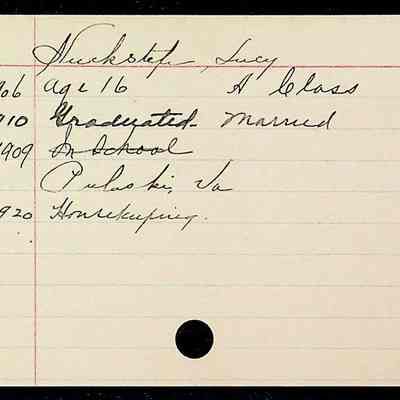 Huckstep, Lucy
06 age 16 A Class
910 Graduated - Married
1909 In School
Pulaski, Va
920 Housekeeping.